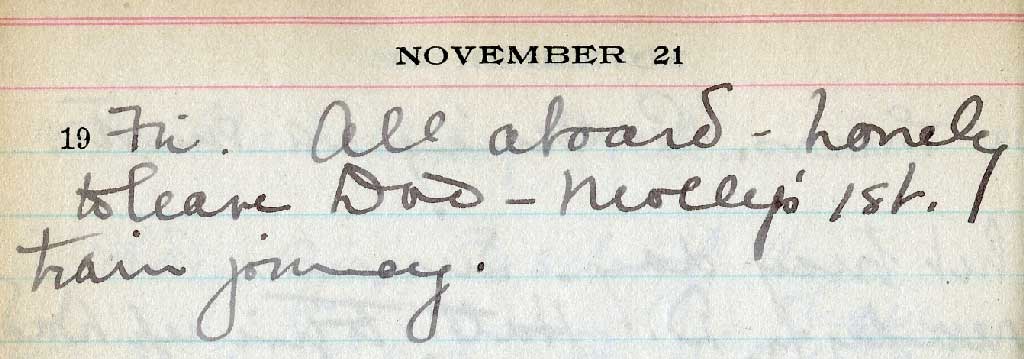 NOVEMBER 21
19 Fri. All aboard - lonely
to leave Dad - Molly's 1st.
train journey.